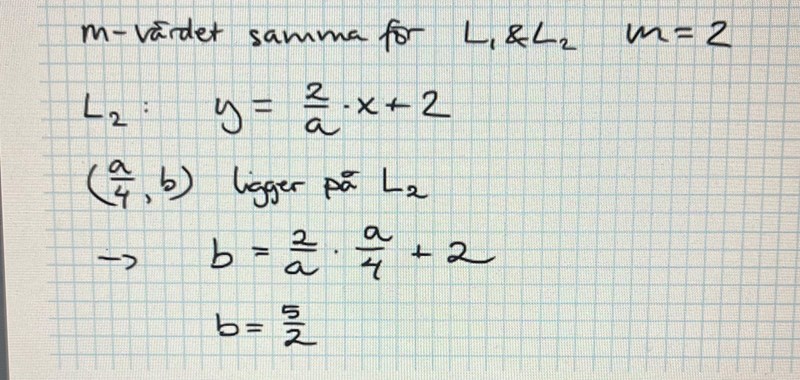 m-värdet samma för L₁ & L₂ m = 2
L₂: y = 2/a · x + 2
(a/4, b) ligger på L₂
→ b = 2/a · a/4 + 2
b = 5/2